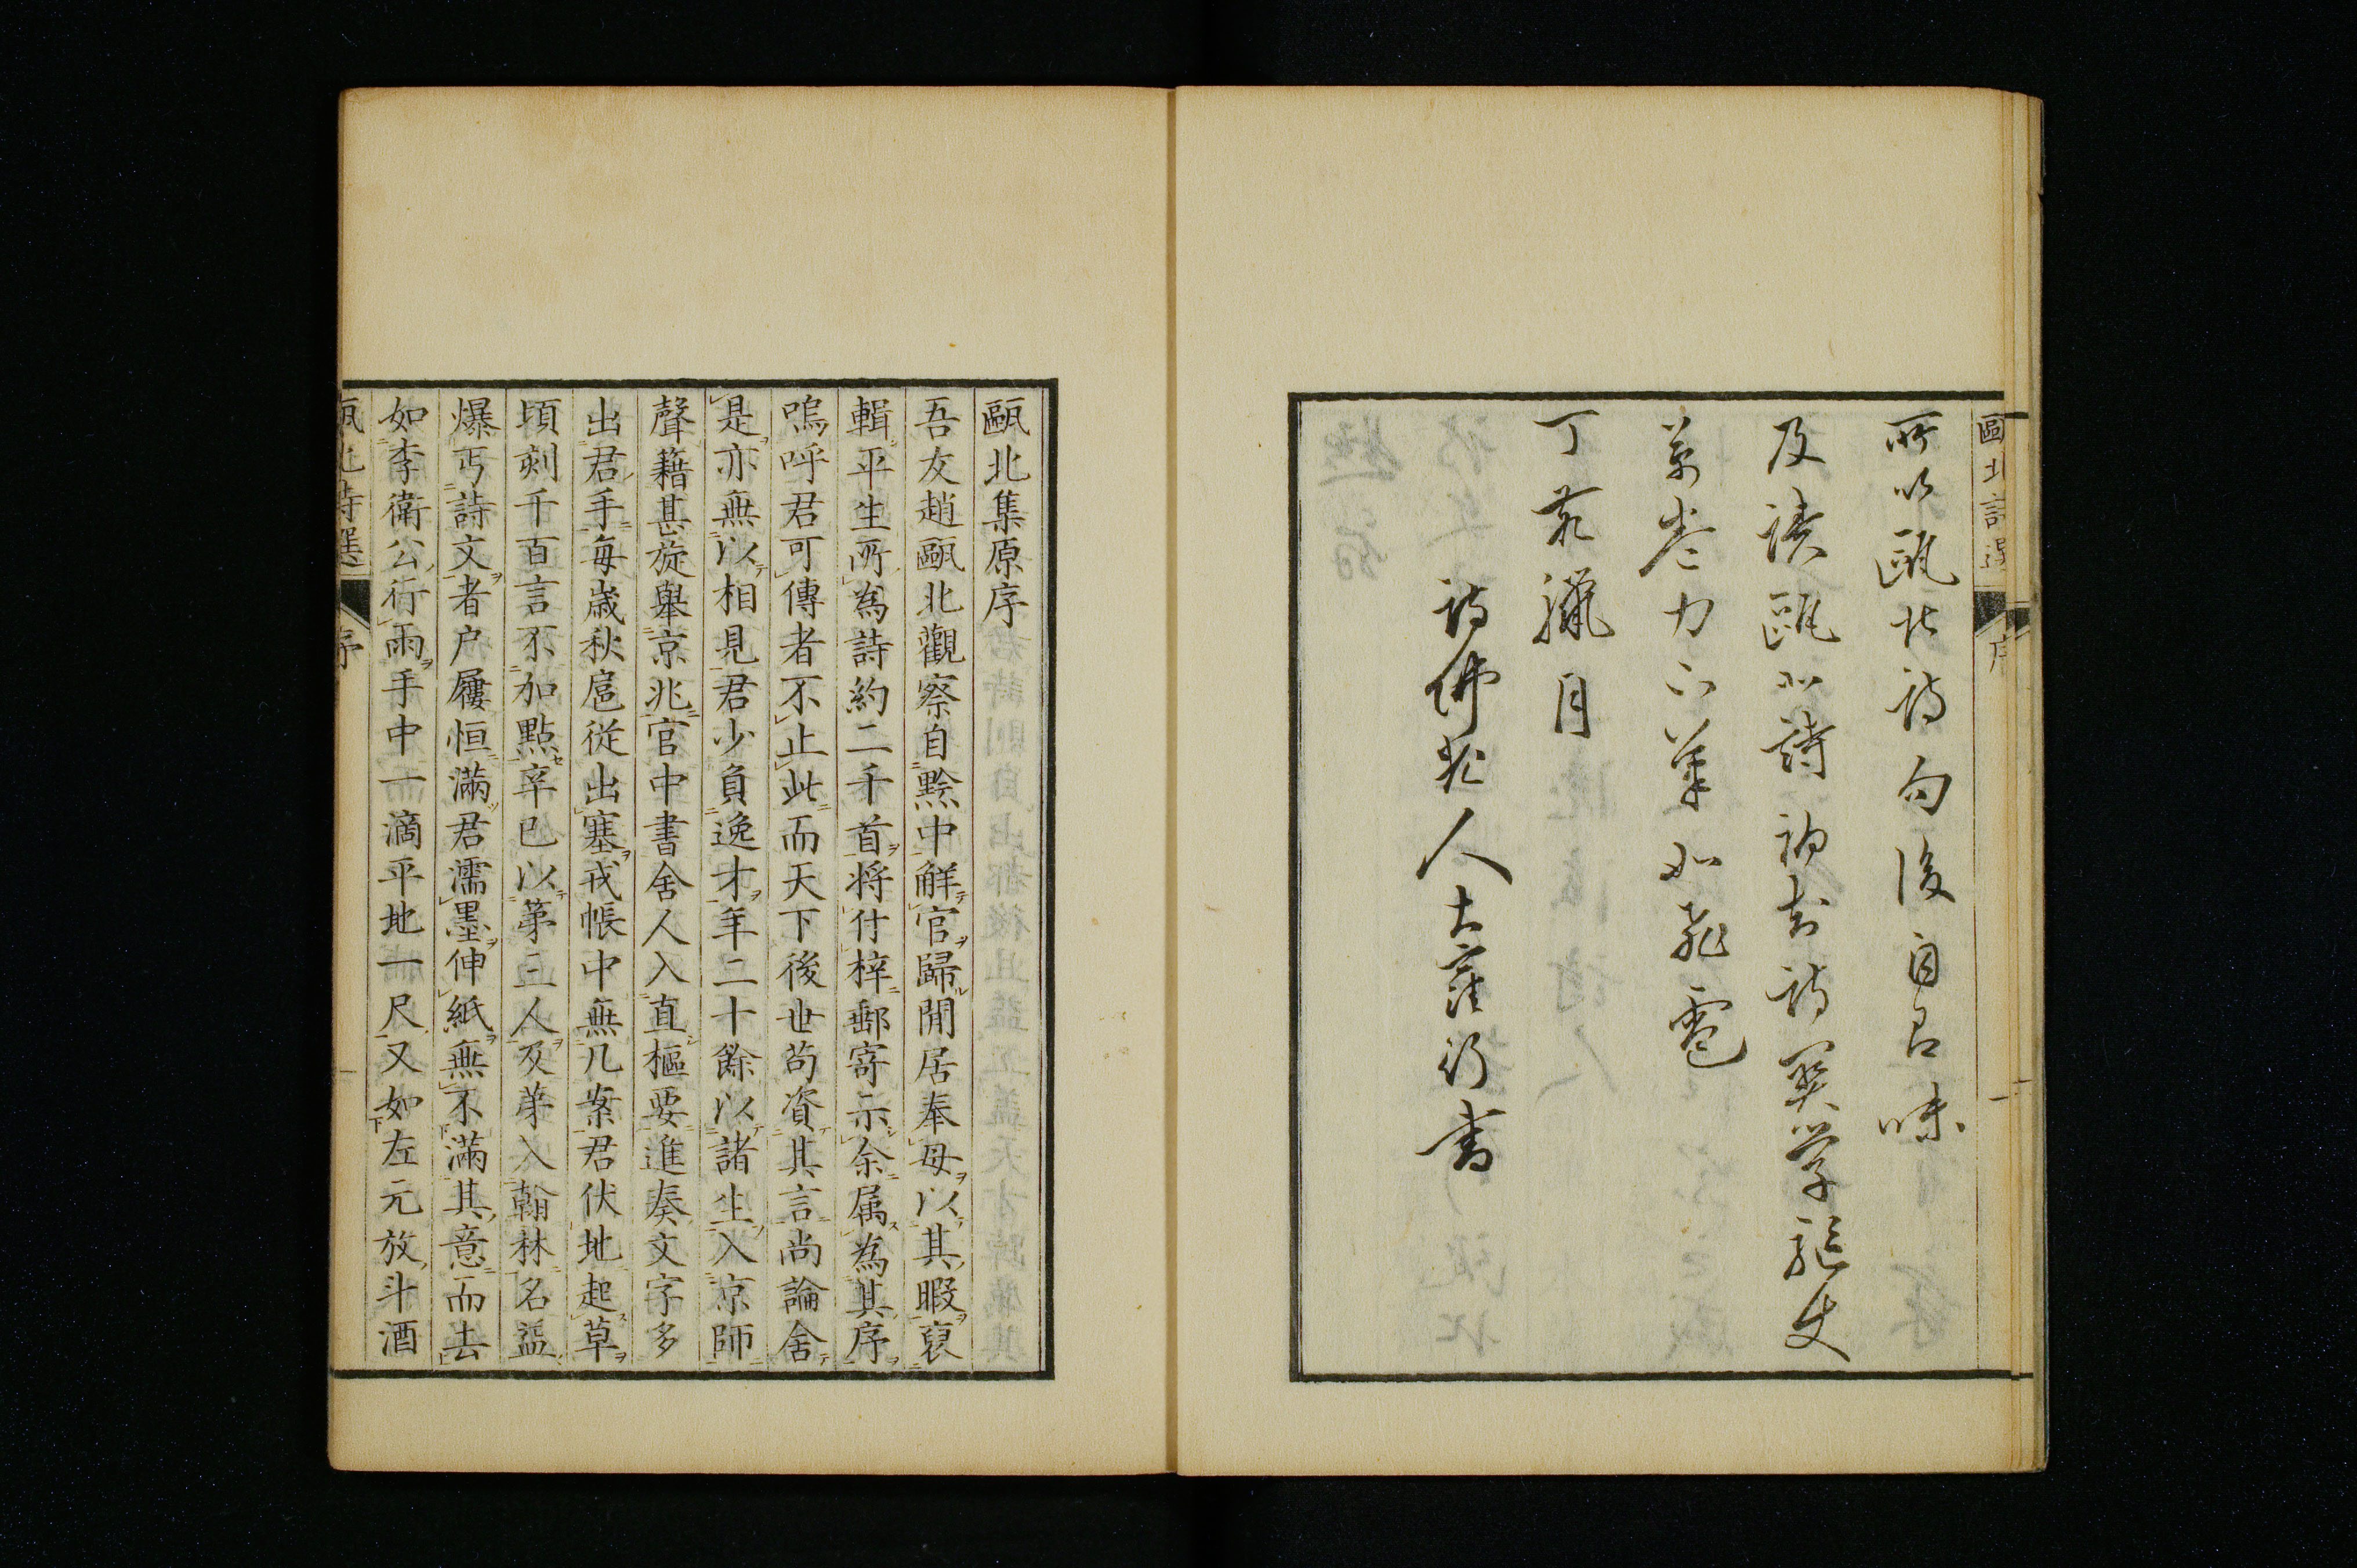 甌北詩選 序 一
所以甌北詩句後自是味
及讀甌北詩初知詩關學驅使
萬卷力不筆如飛雹
丁亥臘月
詩佛老人大窪行書
甌北集原序
吾友趙甌北觀察自黔中解官歸閒居奉母以其暇裒
輯平生所為詩約二千首將付梓郵寄示余属為其序
嗚呼君可傳者不止此而天下後世苟資其言尚論舍
是亦無以相見君少負逸才年二十餘以諸生入京師
聲籍甚旋舉京兆官中書舍人入直樞要進奏文字多
出君手每歲秋扈從出塞戎帳中無几案君伏地起草
頃刻千百言不加點辛巳以第三人及第入翰林名益
爆丐詩文者户屨恒滿君濡墨伸紙無不滿其意而去
如李衛公行雨手中一滴平地一尺又如左元放斗酒
甌北詩選 序 一